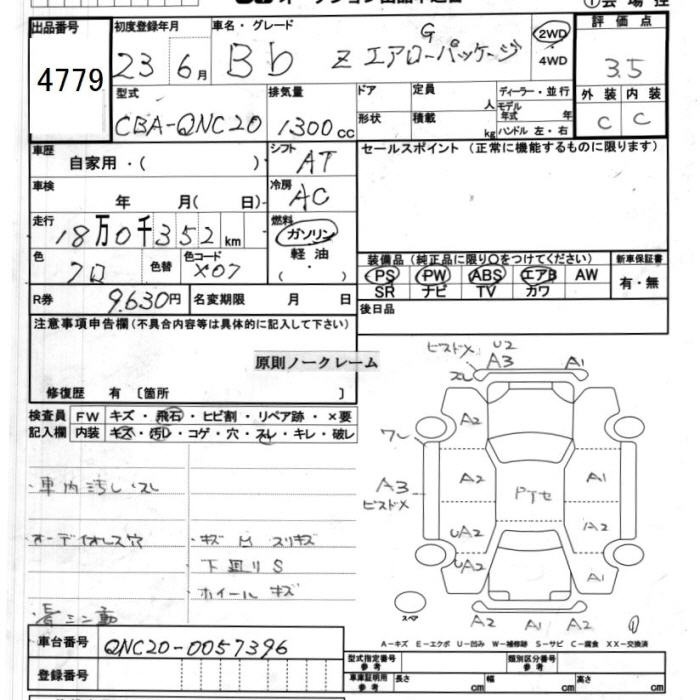 出品番号
4779
初度登録年月
23 6月
車名・グレード
Bb Z エアロGパッケージ
2WD
4WD
評価点
3.5
外装 内装
C C
型式
CBA-QNC20
排気量
1300cc
ドア
定員
人
形状
積載
kg
ディーラー・並行
モデル年式 年
ハンドル 左・右
車歴
自家用・( )
シフト
AT
セールスポイント(正常に機能するものに限ります)
車検
年 月( 日)
冷房
AC
走行
18万0千352km
燃料
ガソリン
軽油
( ・ )
色
クロ
色替
色コード
X07
装備品(純正品に限り○をつけてください)
新車保証書
PS PW ABS エアB AW
SR ナビ TV カワ
有・無
R券
9,630円
名変期限 月 日
後日品
注意事項申告欄(不具合内容等は具体的に記入して下さい)
原則ノークレーム
修復歴 有 [箇所 ]
検査員記入欄
FW キズ・飛石・ヒビ割・リペア跡・×要
内装 キズ・汚レ・コゲ・穴・スレ・キレ・破レ
・車内汚レ・スレ
オーディオレス穴
・キズ凹スリキズ
下廻りS
ホイールキズ
ビスドメ U2
A3
A1
スレ
A2
ワレ
A3
ビスドメ
A2
A1
UA2
A2
UA2
A1
A2 A1 A2
スペア
①
A-キズ E-エクボ U-凹み W-補修跡 S-サビ C-腐食 XX-交換済
車台番号
QNC20-0057396
登録番号
型式指定番号 参考
類別区分番号 参考
車庫証明用 参考
長さ cm
幅 cm
高さ cm